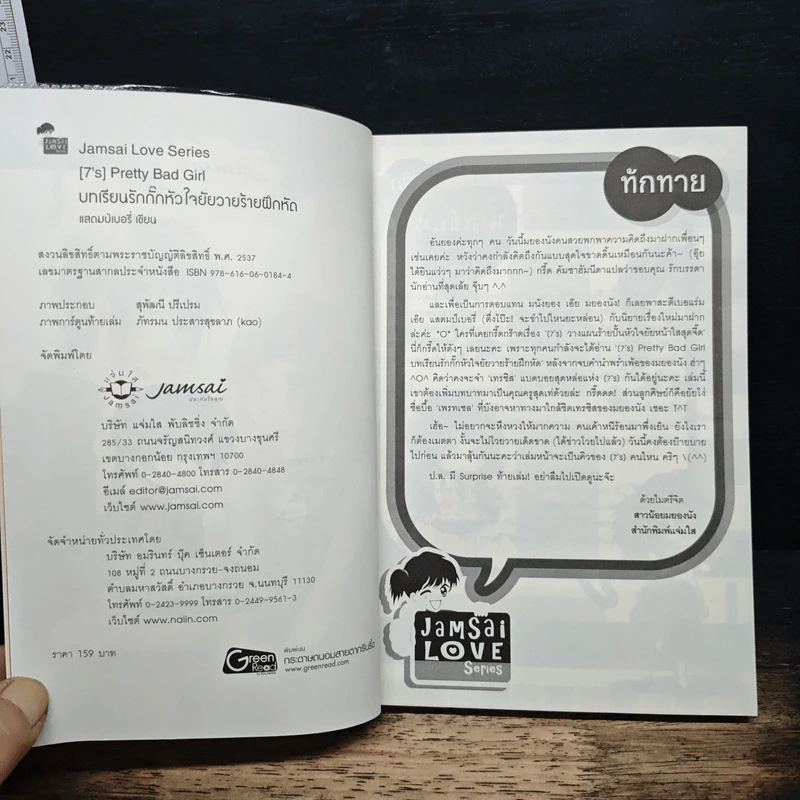 JAMSAI
LOVE
Jamsai Love Series
[7's] Pretty Bad Girl
บทเรียนรักกั๊กหัวใจยัยวายร้ายฝึกหัด
แสตมป์เบอรี่ เขียน
สงวนลิขสิทธิ์ตามพระราชบัญญัติลิขสิทธิ์ พ.ศ. 2537
เลขมาตรฐานสากลประจำหนังสือ ISBN 978-616-06-0184-4
ภาพประกอบ สุพัฒนี ปรีเปรม
ภาพการ์ตูนท้ายเล่ม ภัทรมน ประสารสุขลาภ (kao)
จัดพิมพ์โดย
แจ่มใส
Jamsai
Jamsai
ประทับใจคุณ
บริษัท แจ่มใส พับลิชชิ่ง จำกัด
285/33 ถนนจรัญสนิทวงศ์ แขวงบางขุนศรี
เขตบางกอกน้อย กรุงเทพฯ 10700
โทรศัพท์ 0-2840-4800 โทรสาร 0-2840-4848
อีเมล์ editor@jamsai.com
เว็บไซต์ www.jamsai.com
จัดจำหน่ายทั่วประเทศโดย
บริษัท อมรินทร์ บุ๊ค เซ็นเตอร์ จำกัด
108 หมู่ที่ 2 ถนนบางกรวย-จงถนอม
ตำบลมหาสวัสดิ์ อำเภอบางกรวย จ.นนทบุรี 11130
โทรศัพท์ 0-2423-9999 โทรสาร 0-2449-9561-3
เว็บไซต์ www.naiin.com
ราคา 159 บาท
Green
Read
พิมพ์บน
กระดาษถนอมสายตากรีนรี้ด
www.greenread.com
ทักทาย
อันยองค่ะทุกๆ คน วันนี้มยองนังคนสวยพกพาความคิดถึงมาฝากเพื่อนๆ
เช่นเคยค่ะ หวังว่าคงกำลังคิดถึงกันแบบสุดใจขาดดิ้นเหมือนกันนะค้า~ (อุ๊ย
ได้ยินแว่วๆ มาว่าคิดถึงมากกก~) กรี๊ด คัมซาฮัมนีดาแปลว่าขอบคุณ รักบรรดา
นักอ่านที่สุดเล้ย จุ๊บๆ ^.^
และเพื่อเป็นการตอบแทน มนังยอง เอ๊ย มยองนัง! ก็เลยพาสะตีเบอแร่ม
เอ๊ย แสตมป์เบอรี่ (ดึ๋งโป๊ะ! จะขำไปไหนยะหล่อน) กับนิยายเรื่องใหม่มาฝาก
ล่ะค่ะ *O* ใครที่เคยกรี๊ดกร๊าดเรื่อง '(7's) วางแผนร้ายปั้นหัวใจยัยหน้าใสสุดจี๊ด'
นี่ก็กรี๊ดให้ดังๆ เลยนะคะ เพราะทุกคนกำลังจะได้อ่าน '(7's) Pretty Bad Girl
บทเรียนรักกั๊กหัวใจยัยวายร้ายฝึกหัด' หลังจากจบคำนำพร่ำเพ้อของมยองนัง ฮ่าๆ
^O^ คิดว่าคงจะจำ 'เทรซิส' แบดบอยสุดหล่อแห่ง (7's) กันได้อยู่นะคะ เล่มนี้
เขาต้องเพิ่มบทบาทมาเป็นคุณครูสุดเท่ด้วยล่ะ กรี๊ดดด! ส่วนลูกศิษย์ก็คือยัยโง่
ชื่อบื้อ 'เพรทเซล' ที่บังอาจหาทางมาใกล้ชิดเทรซิสของมยองนัง เชอะ T^T
เฮ้อ~ ไม่อยากจะหึงหวงให้มากความ คนเค้าหนีร้อนมาพึ่งเย็น ยังไงเรา
ก็ต้องเมตตา งั้นจะไม่โวยวายเด็ดขาด (ได้ข่าวโวยไปแล้ว) วันนี้คงต้องบ๊ายบาย
ไปก่อน แล้วมาลุ้นกันนะคะว่าเล่มหน้าจะเป็นคิวของ (7's) คนไหน คริๆ \(^^)
ป.ล. มี Surprise ท้ายเล่ม! อย่าลืมไปเปิดดูนะจ๊ะ
ด้วยไมตรีจิต
สาวน้อยมยองนัง
สำนักพิมพ์แจ่มใส
JAMSAI
LOVE
Series